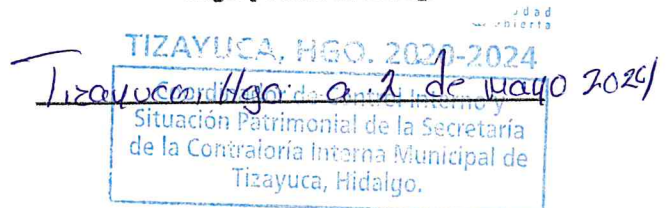 TIZAYUCA, HGO. 2020-2024
Tizayuca, Hgo. a 2 de Mayo 2024
Coordinador de Control Interno y
Situación Patrimonial de la Secretaría
de la Contraloría Interna Municipal de
Tizayuca, Hidalgo.